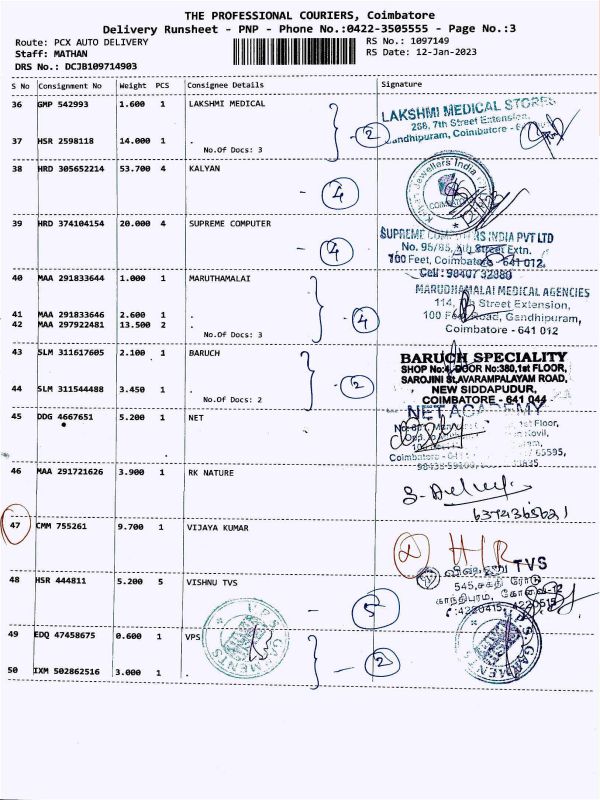 THE PROFESSIONAL COURIERS, Coimbatore
Delivery Runsheet - PNP - Phone No.:0422-3505555 - Page No.:3
Route: PCX AUTO DELIVERY
Staff: MATHAN
DRS No.: DCJB109714903
RS No.: 1097149
RS Date: 12-Jan-2023
S No Consignment No Weight PCS Consignee Details Signature
36 GMP 542993 1.600 1 LAKSHMI MEDICAL
37 HSR 2598118 14.000 1 .
No.Of Docs: 3
2
LAKSHMI MEDICAL STORES
7th Street Extension,
Gandhipuram, Coimbatore -
38 HRD 305652214 53.700 4 KALYAN
4
Kalyan Jewellers India
39 HRD 374104154 20.000 4 SUPREME COMPUTER
4
SUPREME INDIA PVT LTD
No. 95/85, Street Extn.
100 Feet, Coimbatore - 641 012.
Cell : 98407 32880
40 MAA 291833644 1.000 1 MARUTHAMALAI
41 MAA 291833646 2.600 1 .
42 MAA 297922481 13.500 2 .
No.Of Docs: 3
4
MARUDHAMALAI MEDICAL AGENCIES
114, Street Extension,
100 Road, Gandhipuram,
Coimbatore - 641 012
43 SLM 311617605 2.100 1 BARUCH
44 SLM 311544488 3.450 1 .
No.Of Docs: 2
2
BARUCH SPECIALITY
SHOP No:4, DOOR No:380,1st FLOOR,
SAROJINI St,AVARAMPALAYAM ROAD,
NEW SIDDAPUDUR,
COIMBATORE - 641 044
45 DDG 4667651 5.200 1 NET
NET ACADEMY
1st Floor,
46 MAA 291721626 3.900 1 RK NATURE
6374365621
47 CMM 755261 9.700 1 VIJAYA KUMAR
HR
48 HSR 444811 5.200 5 VISHNU TVS
5
TVS
545,சக்தி ரோடு
காந்திபுரம்,
49 EDQ 47458675 0.600 1 VPS
50 IXM 502862516 3.000 1 .
2
V.P.S. GARMENTS
V.P.S. GARMENTS